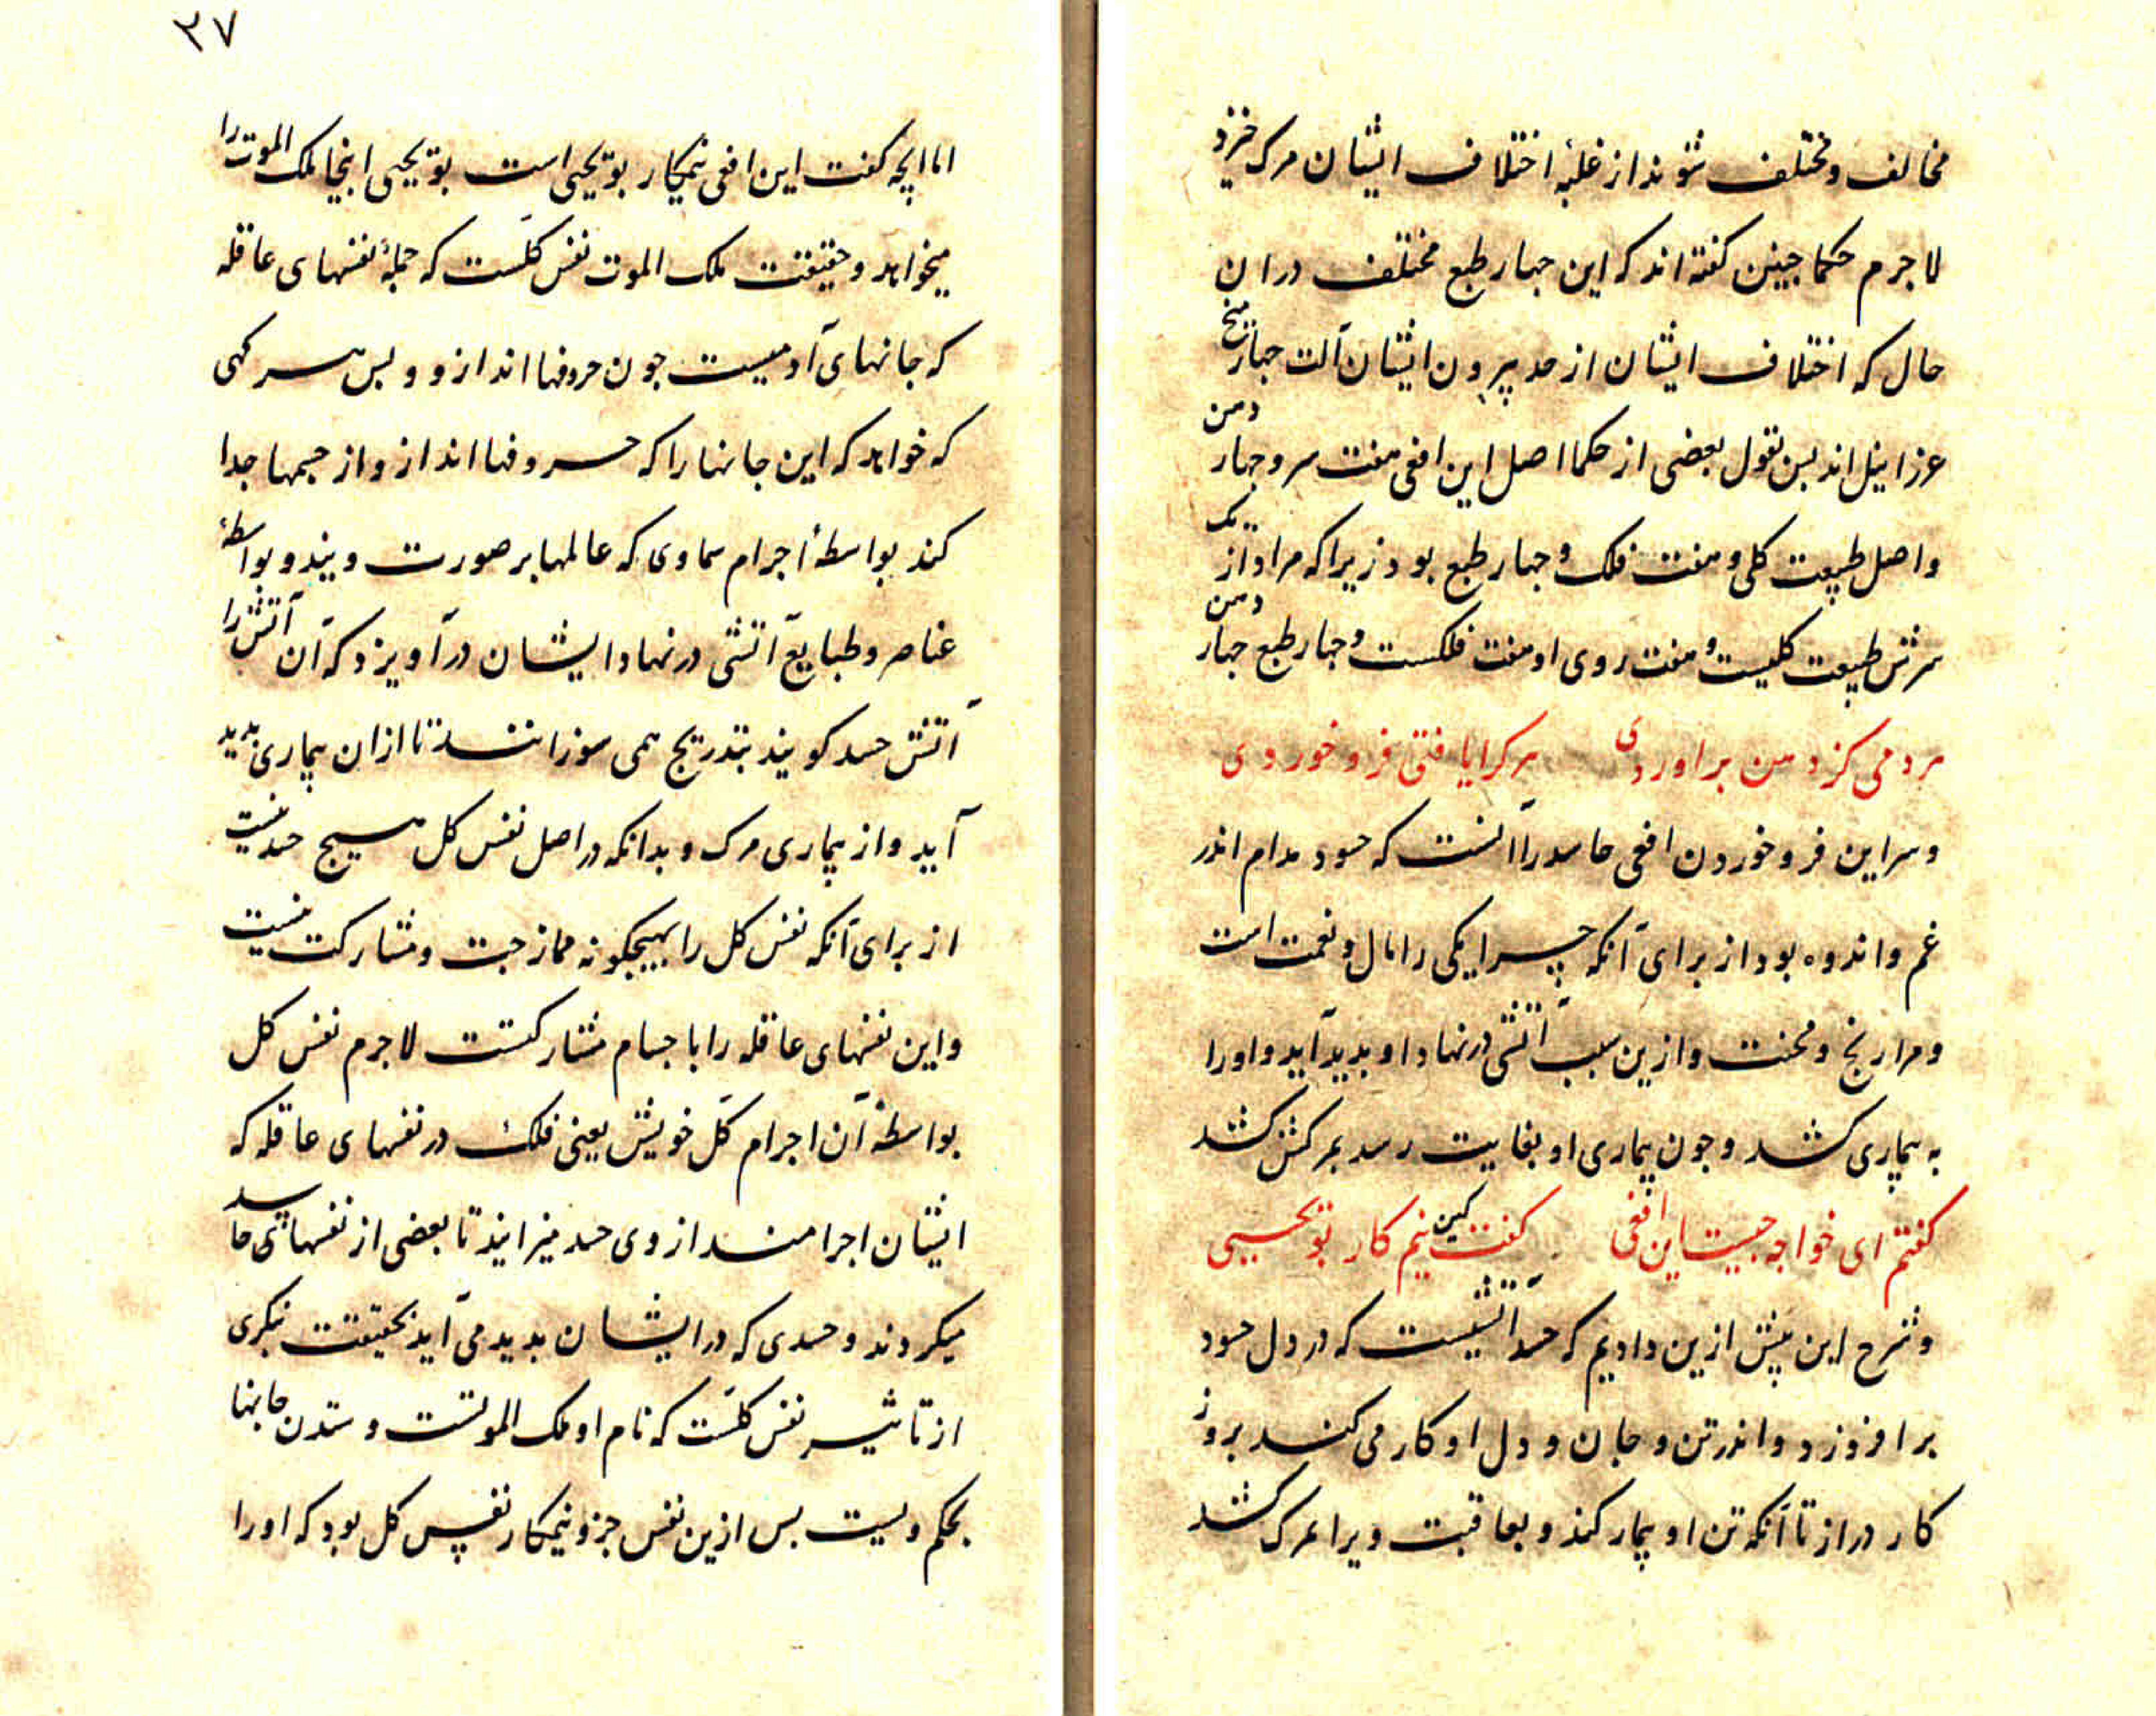 مخالف و مختلف شوند از غلبهٔ اختلاف ایشان مرک خیزد
لاجرم حکما جنین کفته اند که این جهار طبع مختلف در ان
حال که اختلاف ایشان از حد بیرون ایشان آلت جهار میخ
عزائیل اند بس بقول بعضی از حکما اصل این افعی هفت سر و جهار دهن
و اصل طبیعت کلی و هفت فلک و جهار طبع بود زیرا که مراد از یک
سرش طبیعت کلیست و هفت روی او هفت فلکست و جهار طبع جهار دهن
هر دمی کز دهن براوردی هر کرا یافتی فرو خوردی
و سر این فرو خوردن افعی حاسد را آنست که حسود مدام اندر
غم و اندوه بود از برای آنکه چرا یکی را مال و نعمت است
و مرا رنج و محنت و ازین سبب آتشی در نهاد او بدید آید و او را
به بیماری کشد و جون بیماری او بغایت رسد بمرکش کشد
کفتم ای خواجه جیست این افعی کفت کین نیم کار بو یحیی
و شرح این بیش ازین دادیم که حسد آتشیست که در دل حسود
بر افروزد و اندر تن و جان و دل او کار می کند بروز
کار دراز تا آنکه تن او بیمار کند و بعاقبت ویرا بمرک کشد
۲۷
اما انچه کفت این افعی نیمکار بو یحیی است بو یحیی اینجا ملک الموت را
میخواهد و حقیقت ملک الموت نفس کلست که جملهٔ نفسهای عاقله
که جانهای آدمیست جون حروفها اند ازو و بس هر کهی
که خواهد که این جانها را که حروفها اند ازو از جسمها جدا
کند بواسطهٔ اجرام سماوی که عالمها بر صورت و بیند و بواسطهٔ
عناصر و طبایع آتشی در نهاد ایشان در آویزد که آن آتش را
آتش حسد کویند بتدریج همی سوزانند تا ازان بیماری بدید
آید و از بیماری مرک و بدانکه در اصل نفس کل هیج حسد نیست
از برای آنکه نفس کل را بهیچکونه ممازجت و مشارکت نیست
و این نفسهای عاقله را با اجسام مشارکتست لاجرم نفس کل
بواسطهٔ آن اجرام کل خویش یعنی فلک در نفسهای عاقله که
ایشان اجرامند از وی حسد میزایند تا بعضی از نفسهای حاسد
میکردند و حسدی که در ایشان بدید می آید بحقیقت نیکری
از تاثیر نفس کلست که نام او ملک الموتست و ستدن جانها
بحکم ویست بس ازین نفس جزو نیمکار نفس کل بود که او را